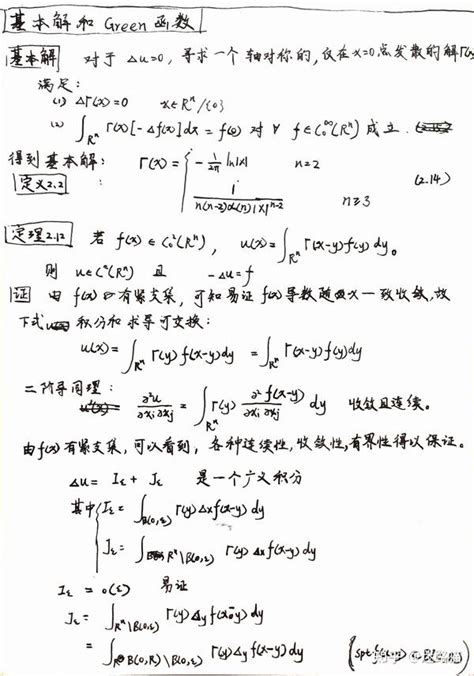 基本解和 Green 函数
基本解 对于 Δu=0, 寻求一个轴对称的, 仅在 x=0 点发散的解 Γ(x)
满足:
(1) ΔΓ(x)=0 x∈R^n/{0}
(2) ∫_{R^n} Γ(x)[-Δf(x)]dx = f(0) 对 ∀ f∈C_0^∞(R^n) 成立.
得到基本解: Γ(x) = { -1/2π ln|x| n=2
定义2.2 : 1/(n(n-2)α(n)|x|^{n-2}) n≥3 (2.14)
定理2.12 若 f(x)∈C_0^2(R^n), u(x)=∫_{R^n} Γ(x-y)f(y)dy。
则 u∈C^2(R^n) 且 -Δu=f
证 由 f(x) 有紧支集, 可知易证 f(x) 导数随 x 一致收敛, 故
下式 积分和求导可交换:
u(x)=∫_{R^n} Γ(y)f(x-y)dy = ∫_{R^n} Γ(x-y)f(y)dy
二阶导同理: ∂²u/∂xi∂xj = ∫_{R^n} Γ(y) ∂²f(x-y)/∂xi∂xj dy 收敛且连续。
由f(x)有紧支集, 可以看到, 各种连续性, 收敛性, 有界性得以保证。
Δu= I_ε + J_ε 是一个广义积分
其中 { I_ε = ∫_{B(0,ε)} Γ(y)Δ_x f(x-y)dy
J_ε = ∫_{R^n\B(0,ε)} Γ(y)Δ_x f(x-y)dy
I_ε = o(ε) 易证
J_ε = ∫_{R^n\B(0,ε)} Γ(y)Δ_y f(x-y)dy
= ∫_{B(0,R)\B(0,ε)} Γ(y)Δ_y f(x-y)dy
知乎